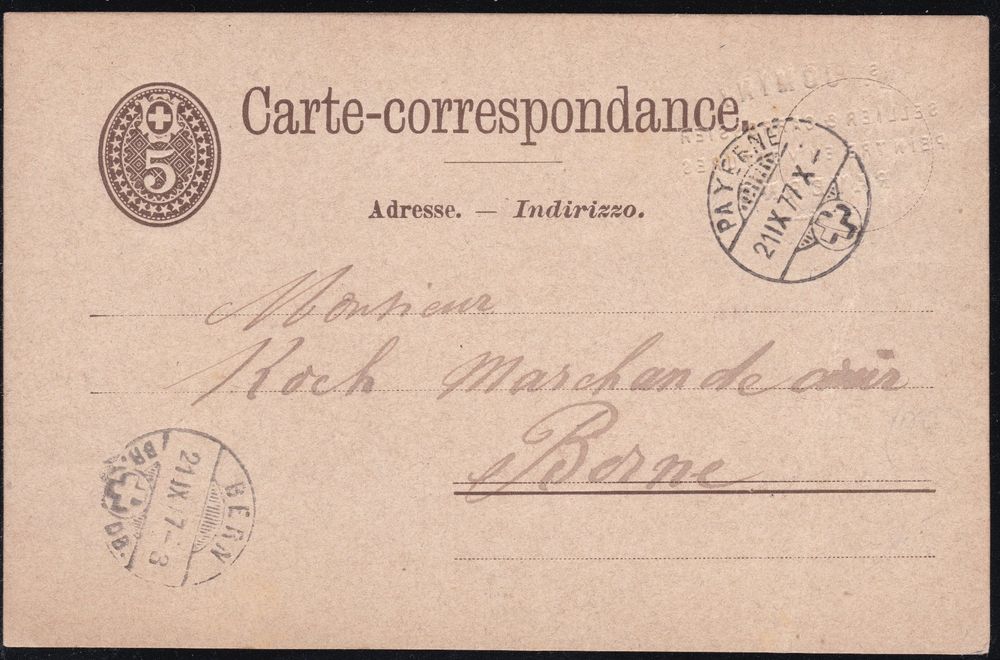 5
Carte-correspondance.
Adresse. — Indirizzo.
PAYERNE
21 IX 77 X-
Monsieur
Koch Marchand
Berne
BERN
21 IX 77-8